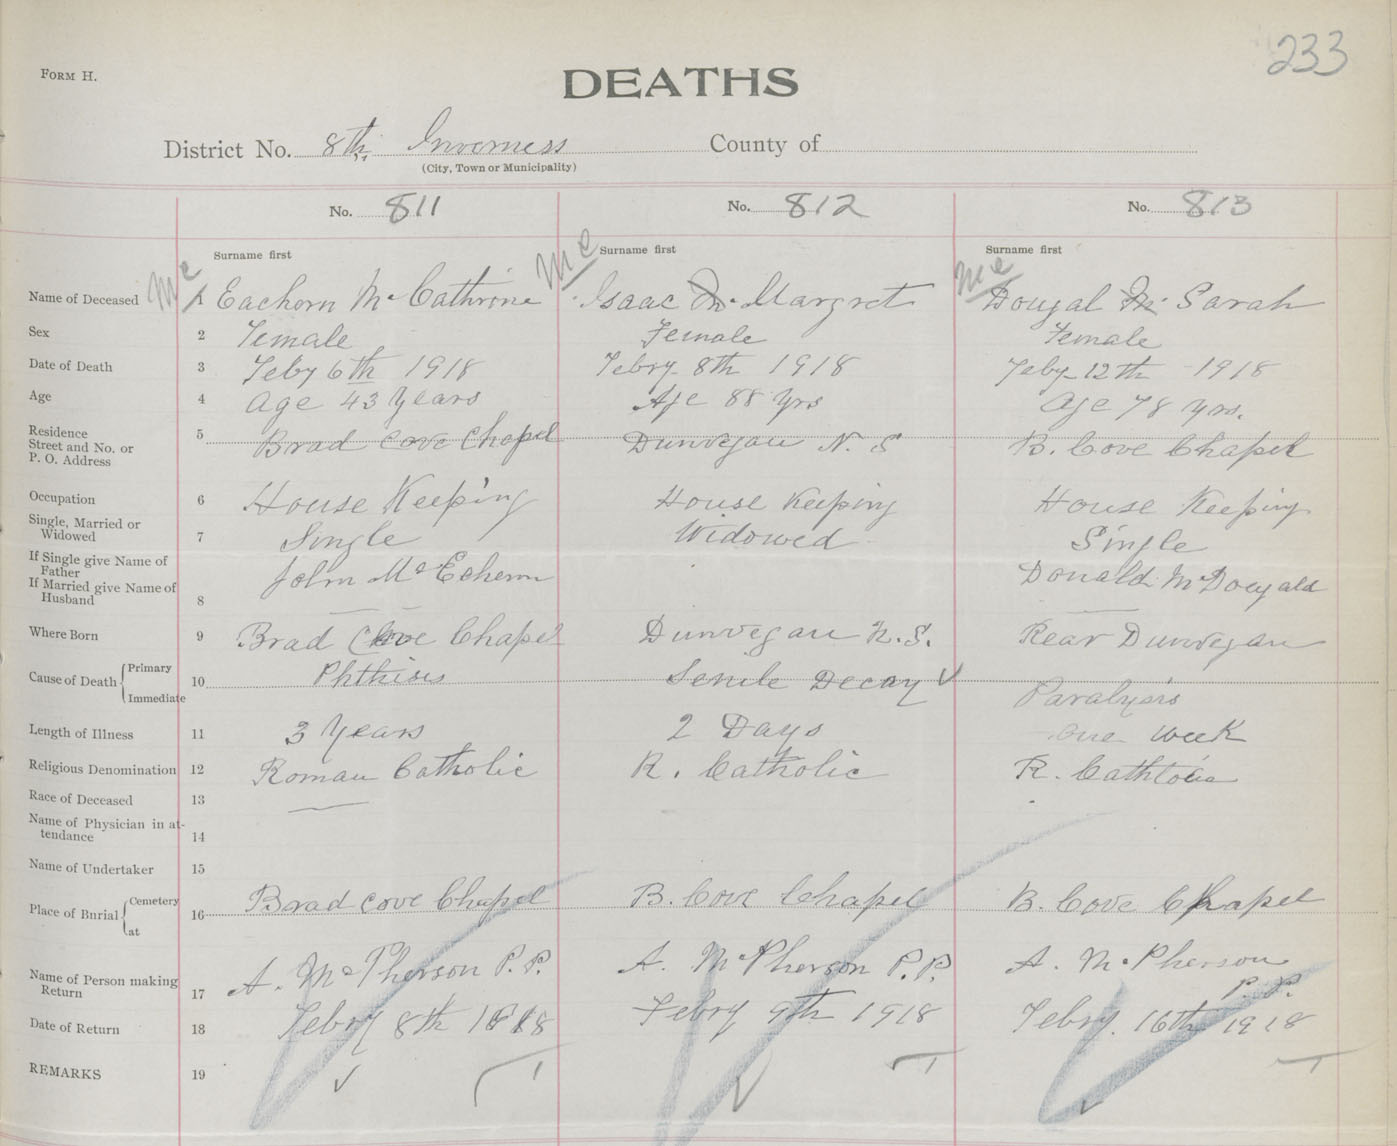 233
Form H.
DEATHS
District No. 8th Inverness County of
(City, Town or Municipality)
No. 811 No. 812 No. 813
Surname first Surname first Surname first
Mc Mc Mc
Name of Deceased 1 Eachern Mc Cathrine Isaac Mc Margret Dougal Mc Sarah
Sex 2 Female Female Female
Date of Death 3 Feby 6th 1918 Febry 8th 1918 Feby 12th 1918
Age 4 Age 43 Years Age 88 Yrs Age 78 Yrs.
Residence
Street and No. or
P. O. Address 5 Brad Cove Chapel Dunvegan N. S B. Cove Chapel
Occupation 6 House Keeping House Keeping House Keeping
Single, Married or
Widowed 7 Single Widowed Single
If Single give Name of
Father
If Married give Name of
Husband 8 John McEchern Donald McDougald
Where Born 9 Brad Cove Chapel Dunvegan N.S. Rear Dunvegan
Cause of Death Primary
Immediate 10 Phthisis Senile Decay Paralysis
Length of Illness 11 3 Years 2 Days One Week
Religious Denomination 12 Roman Catholic R. Catholic R. Cathtolic
Race of Deceased 13
Name of Physician in at-
tendance 14
Name of Undertaker 15
Place of Burial Cemetery
at 16 Brad Cove Chapel B. Cove Chapel B. Cove Chapel
Name of Person making
Return 17 A. McPherson P.P. A. McPherson P.P. A. McPherson P.P.
Date of Return 18 Febry 8th 1918 Febry 9th 1918 Febry. 16th 1918
REMARKS 19